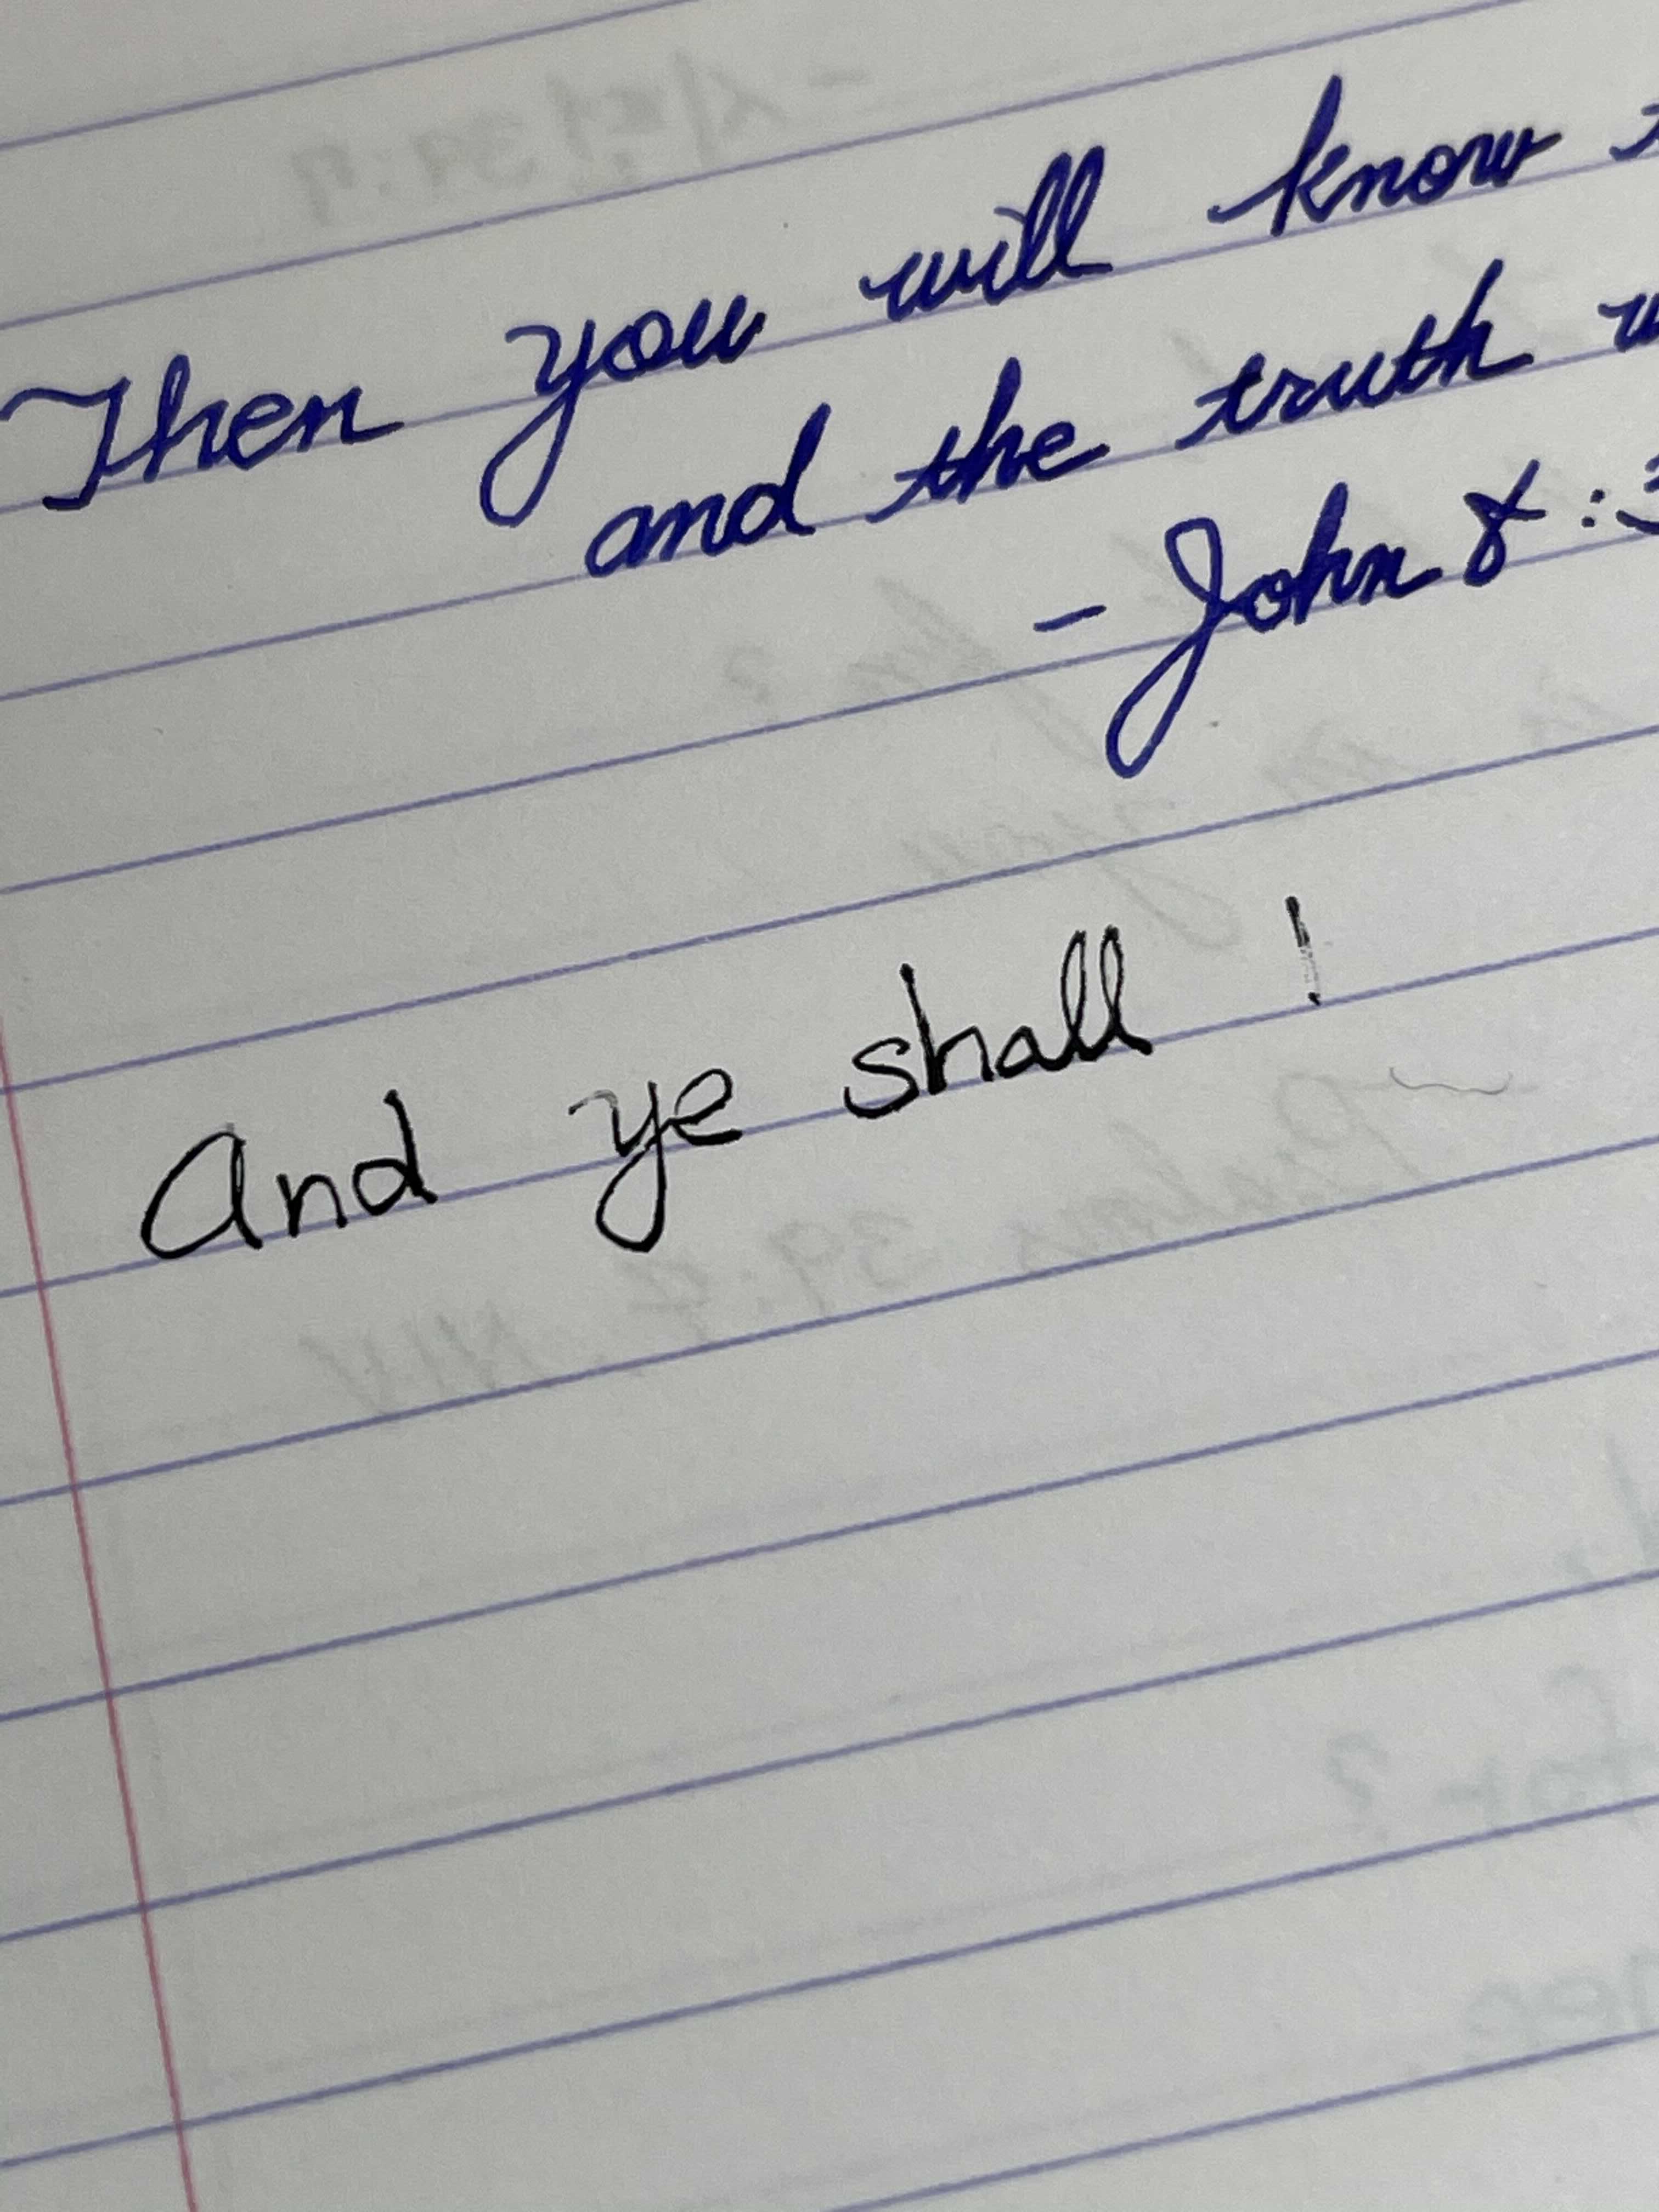 Then you will know
and the truth
- John 8:3
And ye shall !